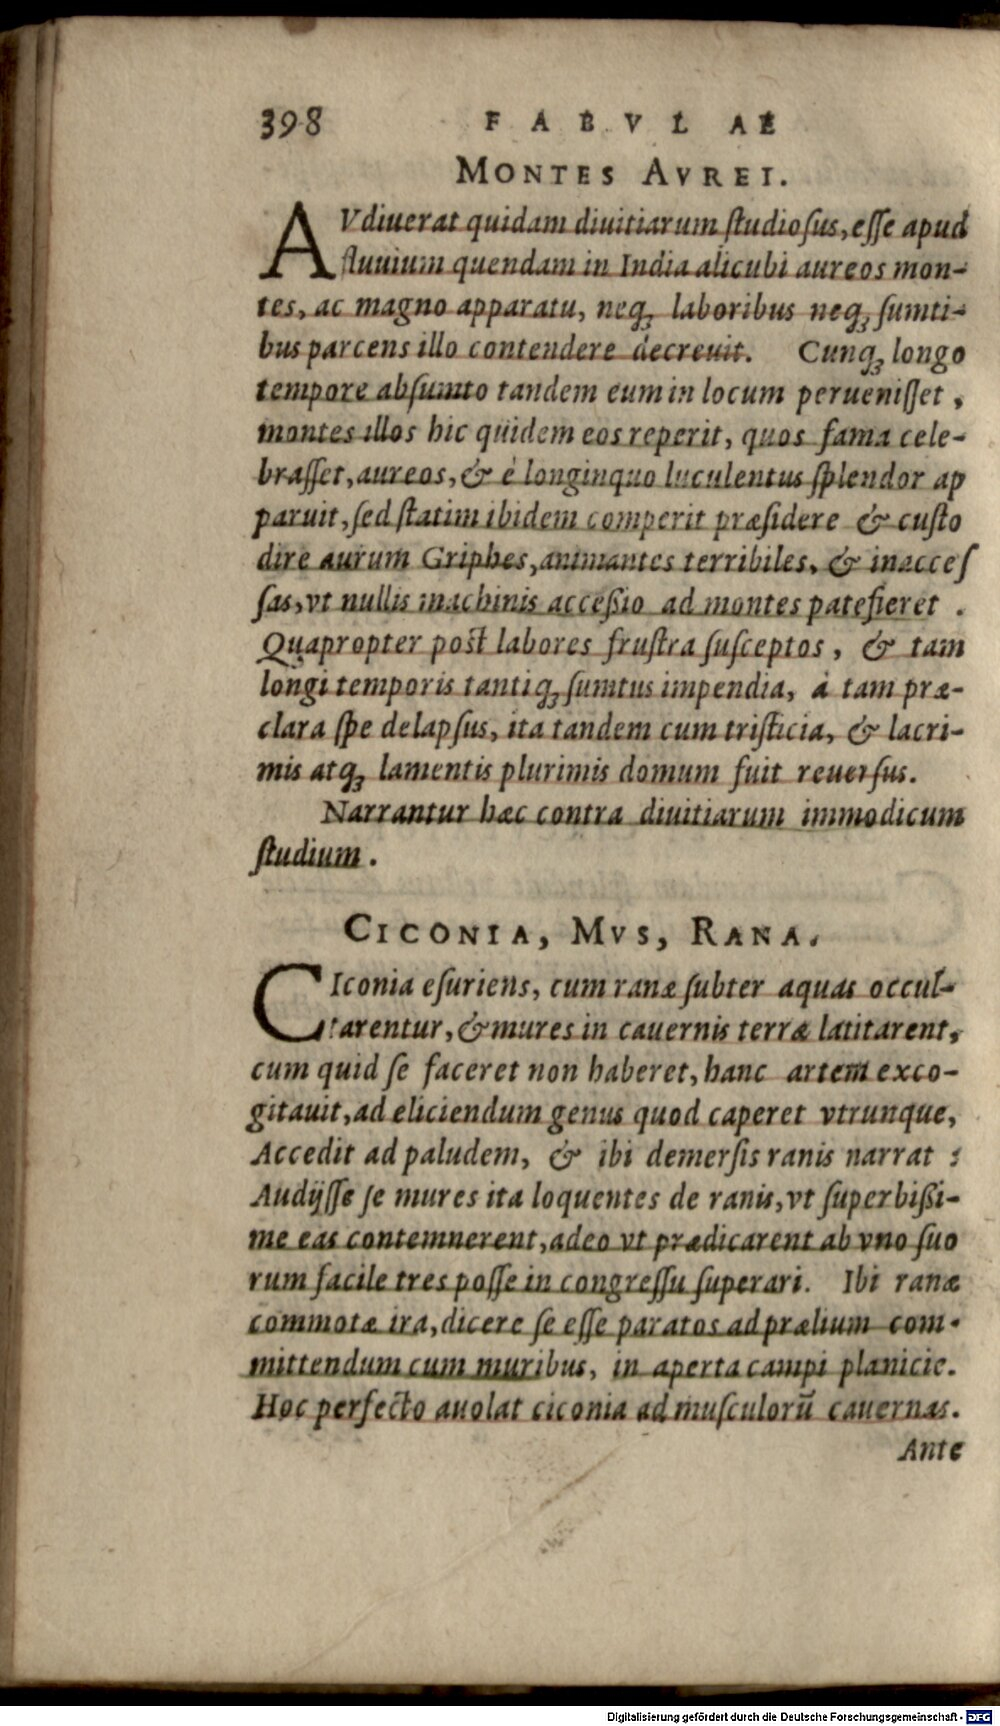 398 FABVLAE
MONTES AVREI.
AVdiuerat quidam diuitiarum ſtudioſus, eſſe apud
fluuium quendam in India alicubi aureos mon-
tes, ac magno apparatu, neqꝫ laboribus neqꝫ ſumti-
bus parcens illo contendere decreuit. Cunqꝫ longo
tempore abſumto tandem eum in locum perueniſſet,
montes illos hic quidem eos reperit, quos fama cele-
braſſet, aureos, & è longinquo luculentus ſplendor ap
paruit, ſed ſtatim ibidem comperit præſidere & cuſto
dire aurum Griphes, animantes terribiles, & inacceſ
ſas, vt nullis machinis acceßio ad montes patefieret.
Quapropter post labores fruſtra ſuſceptos, & tam
longi temporis tantiqꝫ ſumtus impendia, à tam præ-
clara ſpe delapſus, ita tandem cum triſticia, & lacri-
mis atqꝫ lamentis plurimis domum fuit reuerſus.
Narrantur hæc contra diuitiarum immodicum
ſtudium.
CICONIA, MVS, RANA.
CIconia eſuriens, cum ranæ ſubter aquas occul-
tarentur, & mures in cauernis terræ latitarent,
cum quid ſe faceret non haberet, hanc artem exco-
gitauit, ad eliciendum genus quod caperet vtrunque,
Accedit ad paludem, & ibi demerſis ranis narrat:
Audijſſe ſe mures ita loquentes de ranis, vt ſuperbißi-
me eas contemnerent, adeo vt prædicarent ab vno ſuo
rum facile tres poſſe in congreſſu ſuperari. Ibi ranæ
commotæ ira, dicere ſe eſſe paratos ad prælium com-
mittendum cum muribus, in aperta campi planicie.
Hoc perfecto auolat ciconia ad muſculorū cauernas.
Ante
Digitalisierung gefördert durch die Deutsche Forschungsgemeinschaft - DFG